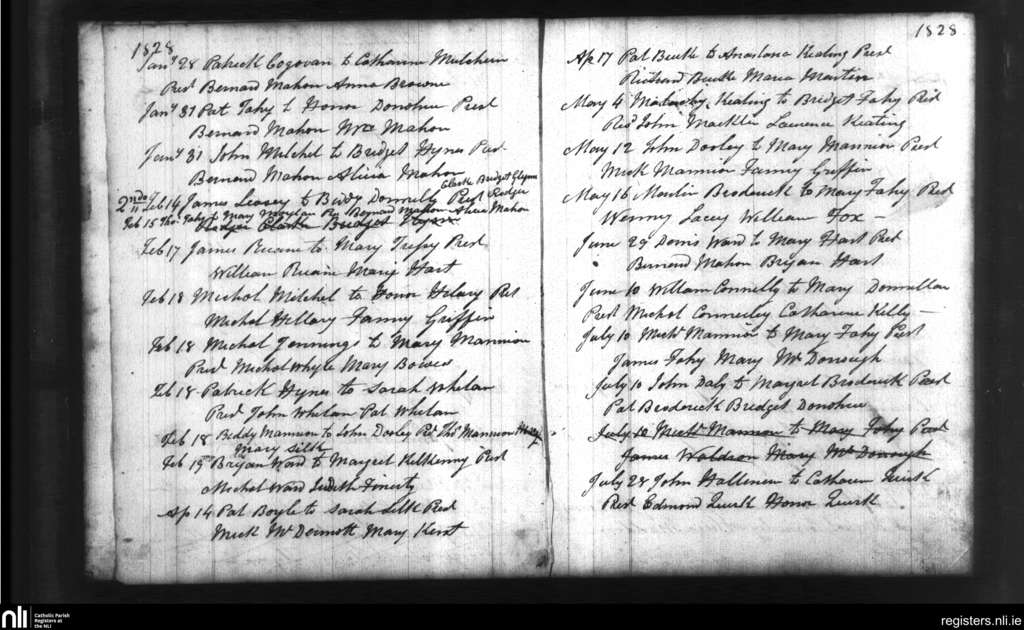 1828
Jany 28 Patrick Cogovan to Catharine Mulchern
Prest Bernard Mahon Anna Browne
Jany 31 Pat Fahy to Honor Donohue Prest
Bernard Mahon Mrs Mahon
Jany 31 John Mitchel to Bridget Hynes Prest
Bernard Mahon Alicia Mahon
Clark Bridget Glynn
2nd Feb 14 James to Biddy Donnelly Prest Rodger
Feb 15 Thos Fahy to Mary Pr Bernard Mahon Alicia Mahon
Rodger Clark Bridget Glynn
Feb 17 James Ruane to Mary Prest
William Ruain Mary Hart
Feb 18 Michol Mitchel to Honor Helary Pret
Michel Hillary Fanny Griffin
Feb 18 Michol Jennings to Mary Mannion
Prest Michol Whyle Mary Bowes
Feb 18 Patrick Hynes to Sarah Whelan
Prest John Whelan Pat Whelan
Feb 18 Biddy Mannion to John Dooley Pr Thos Mannion
Mary Silk
Feb 19 Bryan Ward to Margret Kilkenny Prest
Michol Ward Judith Finerty
Ap 14 Pat Boyle to Sarah Silk Prest
Mick Mc Dermott Mary Kent
1828
Ap 17 Pat Burke to Anastasia Keating Prest
Richard Burke Maria Martin
May 4 Malachy Keating to Bridget Fahy Prst
John Macklin Laurence Keating
May 12 John Dooley to Mary Mannion Prest
Mick Mannion Fanny Griffin
May 16 Martin Broderick to Mary Fahy Prest
Wenny Lacey William Fox –
June 29 Denis Ward to Mary Hart Prest
Bernard Mahon Bryan Hart
June 10 William Connelly to Mary Donnellan
Prest Michol Catharine Kelly –
July 10 Michl Mannion to Mary Fahy Prest
James Fahy Mary Mc Donough
July 10 John Daly to Margret Broderick Prest
Pat Broderick Bridget Donohue
July 10 Michl Mannion to Mary Fahy Prest
James Waldron Mary Mc Donough
July 28 John Hallenan to Catharn Quirk
Prest Edmond Quirk Honor Quirk
nli
Catholic Parish
Registers at
the NLI
registers.nli.ie